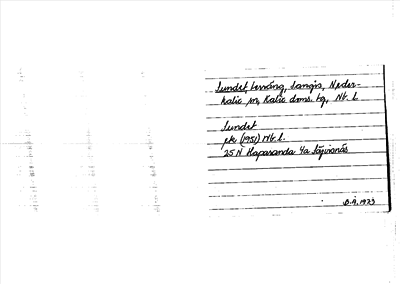 Sundet, terräng, Sangis, Neder-
kalix sn, Kalix doms. tg, Nb. L.
Sundet
ek (1951) Nb. l.
25 N Haparanda 4a Säjvisnäs
1973